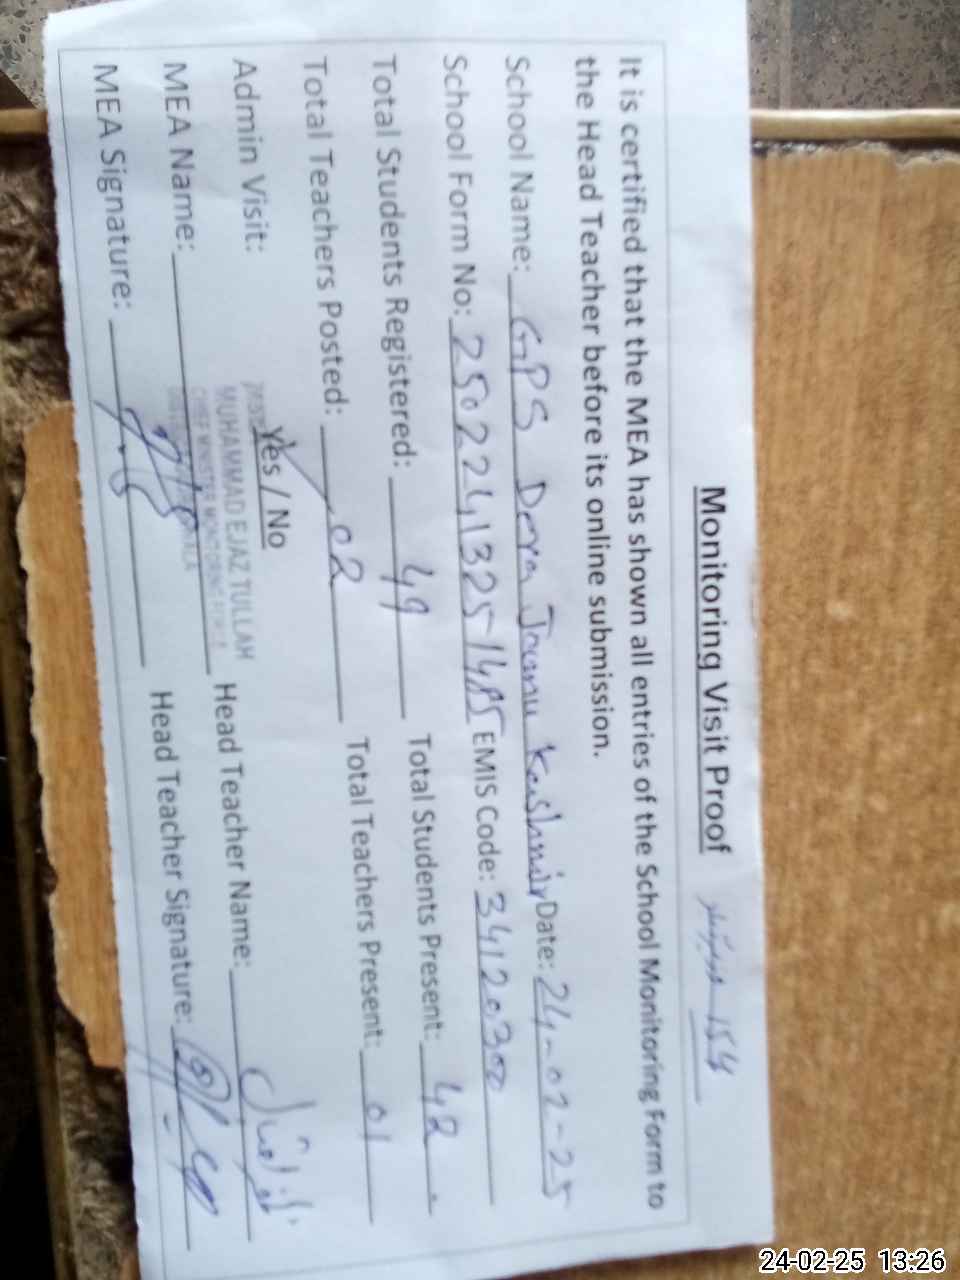 Monitoring Visit Proof
It is certified that the MEA has shown all entries of the School Monitoring Form to
the Head Teacher before its online submission.
School Name: GPS Dera Jaanu Kashmir Date: 24-02-25
School Form No: 25022413251485 EMIS Code: 34120300
Total Students Registered: 49 Total Students Present: 42
Total Teachers Posted: 02 Total Teachers Present: 01
Admin Visit: Yes / No
MUHAMMAD EJAZ TULLAH
CHIEF MINISTER MONITORING
MEA Name: Head Teacher Name:
MEA Signature: Head Teacher Signature:
24-02-25 13:26